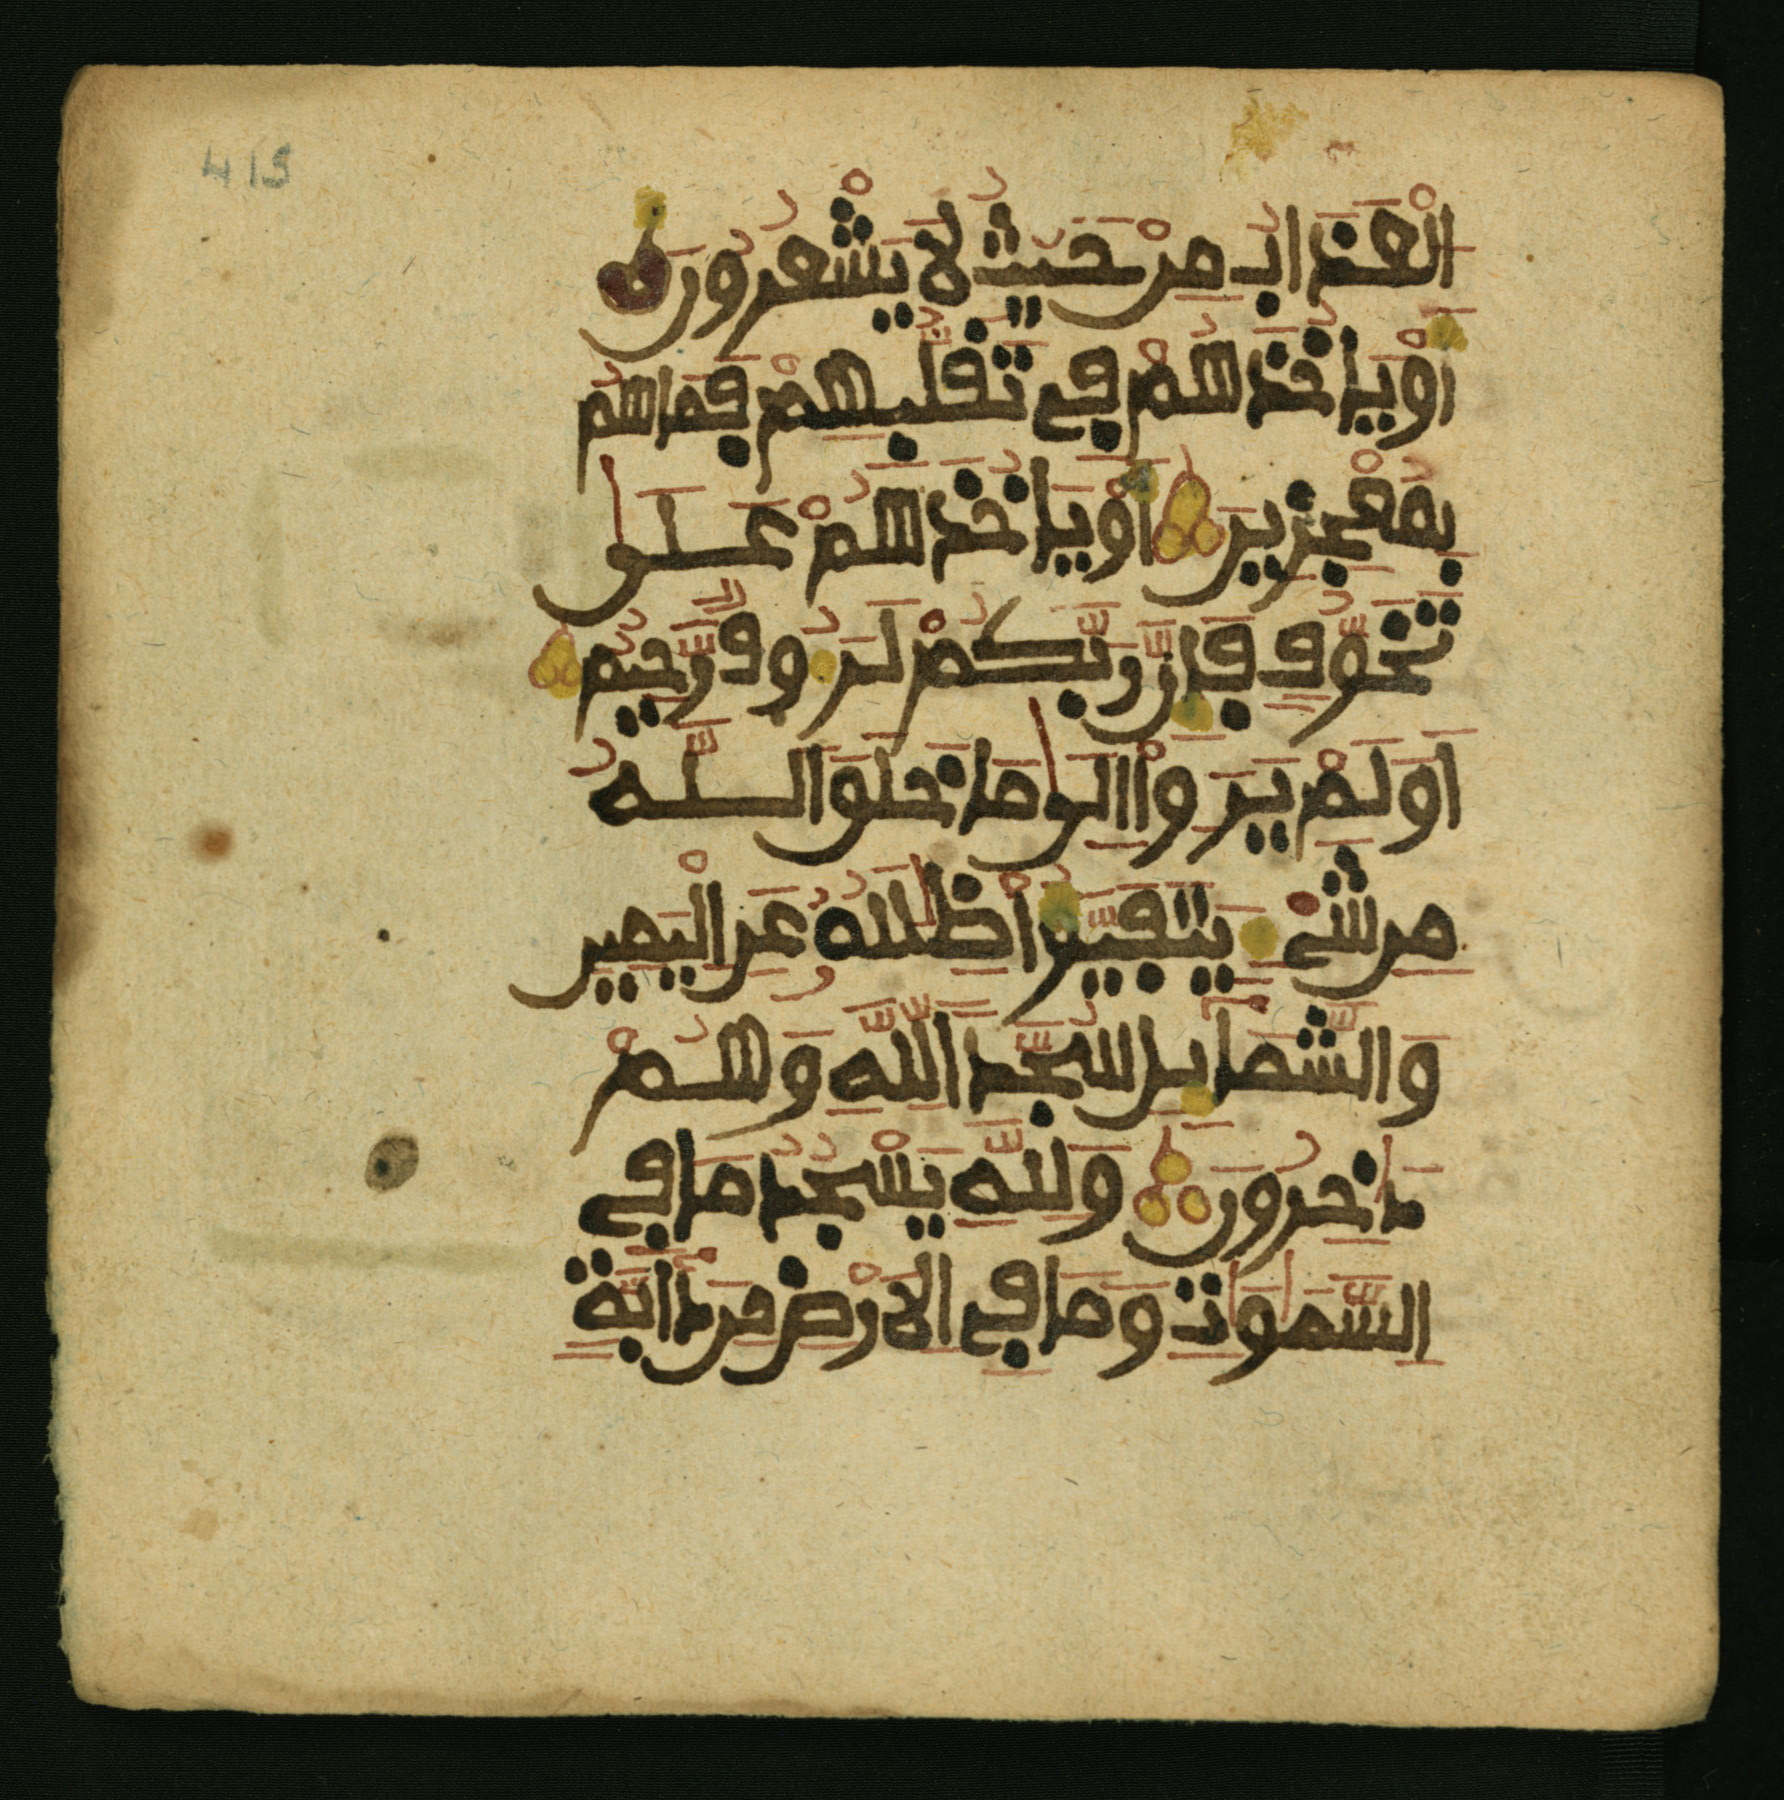 415
الْعَذَابُ مِنْ حَيْثُ لَا يَشْعُرُونَ
أَوْ يَاخُذَهُمْ فِي تَقَلُّبِهِمْ فَمَا هُم
بِمُعْجِزِينَ أَوْ يَاخُذَهُمْ عَلَىٰ
تَخَوُّفٍ فَإِنَّ رَبَّكُمْ لَرَءُوفٌ رَّحِيمٌ
أَوَلَمْ يَرَوْا إِلَىٰ مَا خَلَقَ اللَّهُ
مِن شَيْءٍ يَتَفَيَّؤُا ظِلَٰلُهُ عَنِ الْيَمِينِ
وَالشَّمَائِلِ سُجَّدًا لِّلَّهِ وَهُمْ
دَٰخِرُونَ وَلِلَّهِ يَسْجُدُ مَا فِي
السَّمَٰوَٰتِ وَمَا فِي الْأَرْضِ مِن دَابَّةٍ